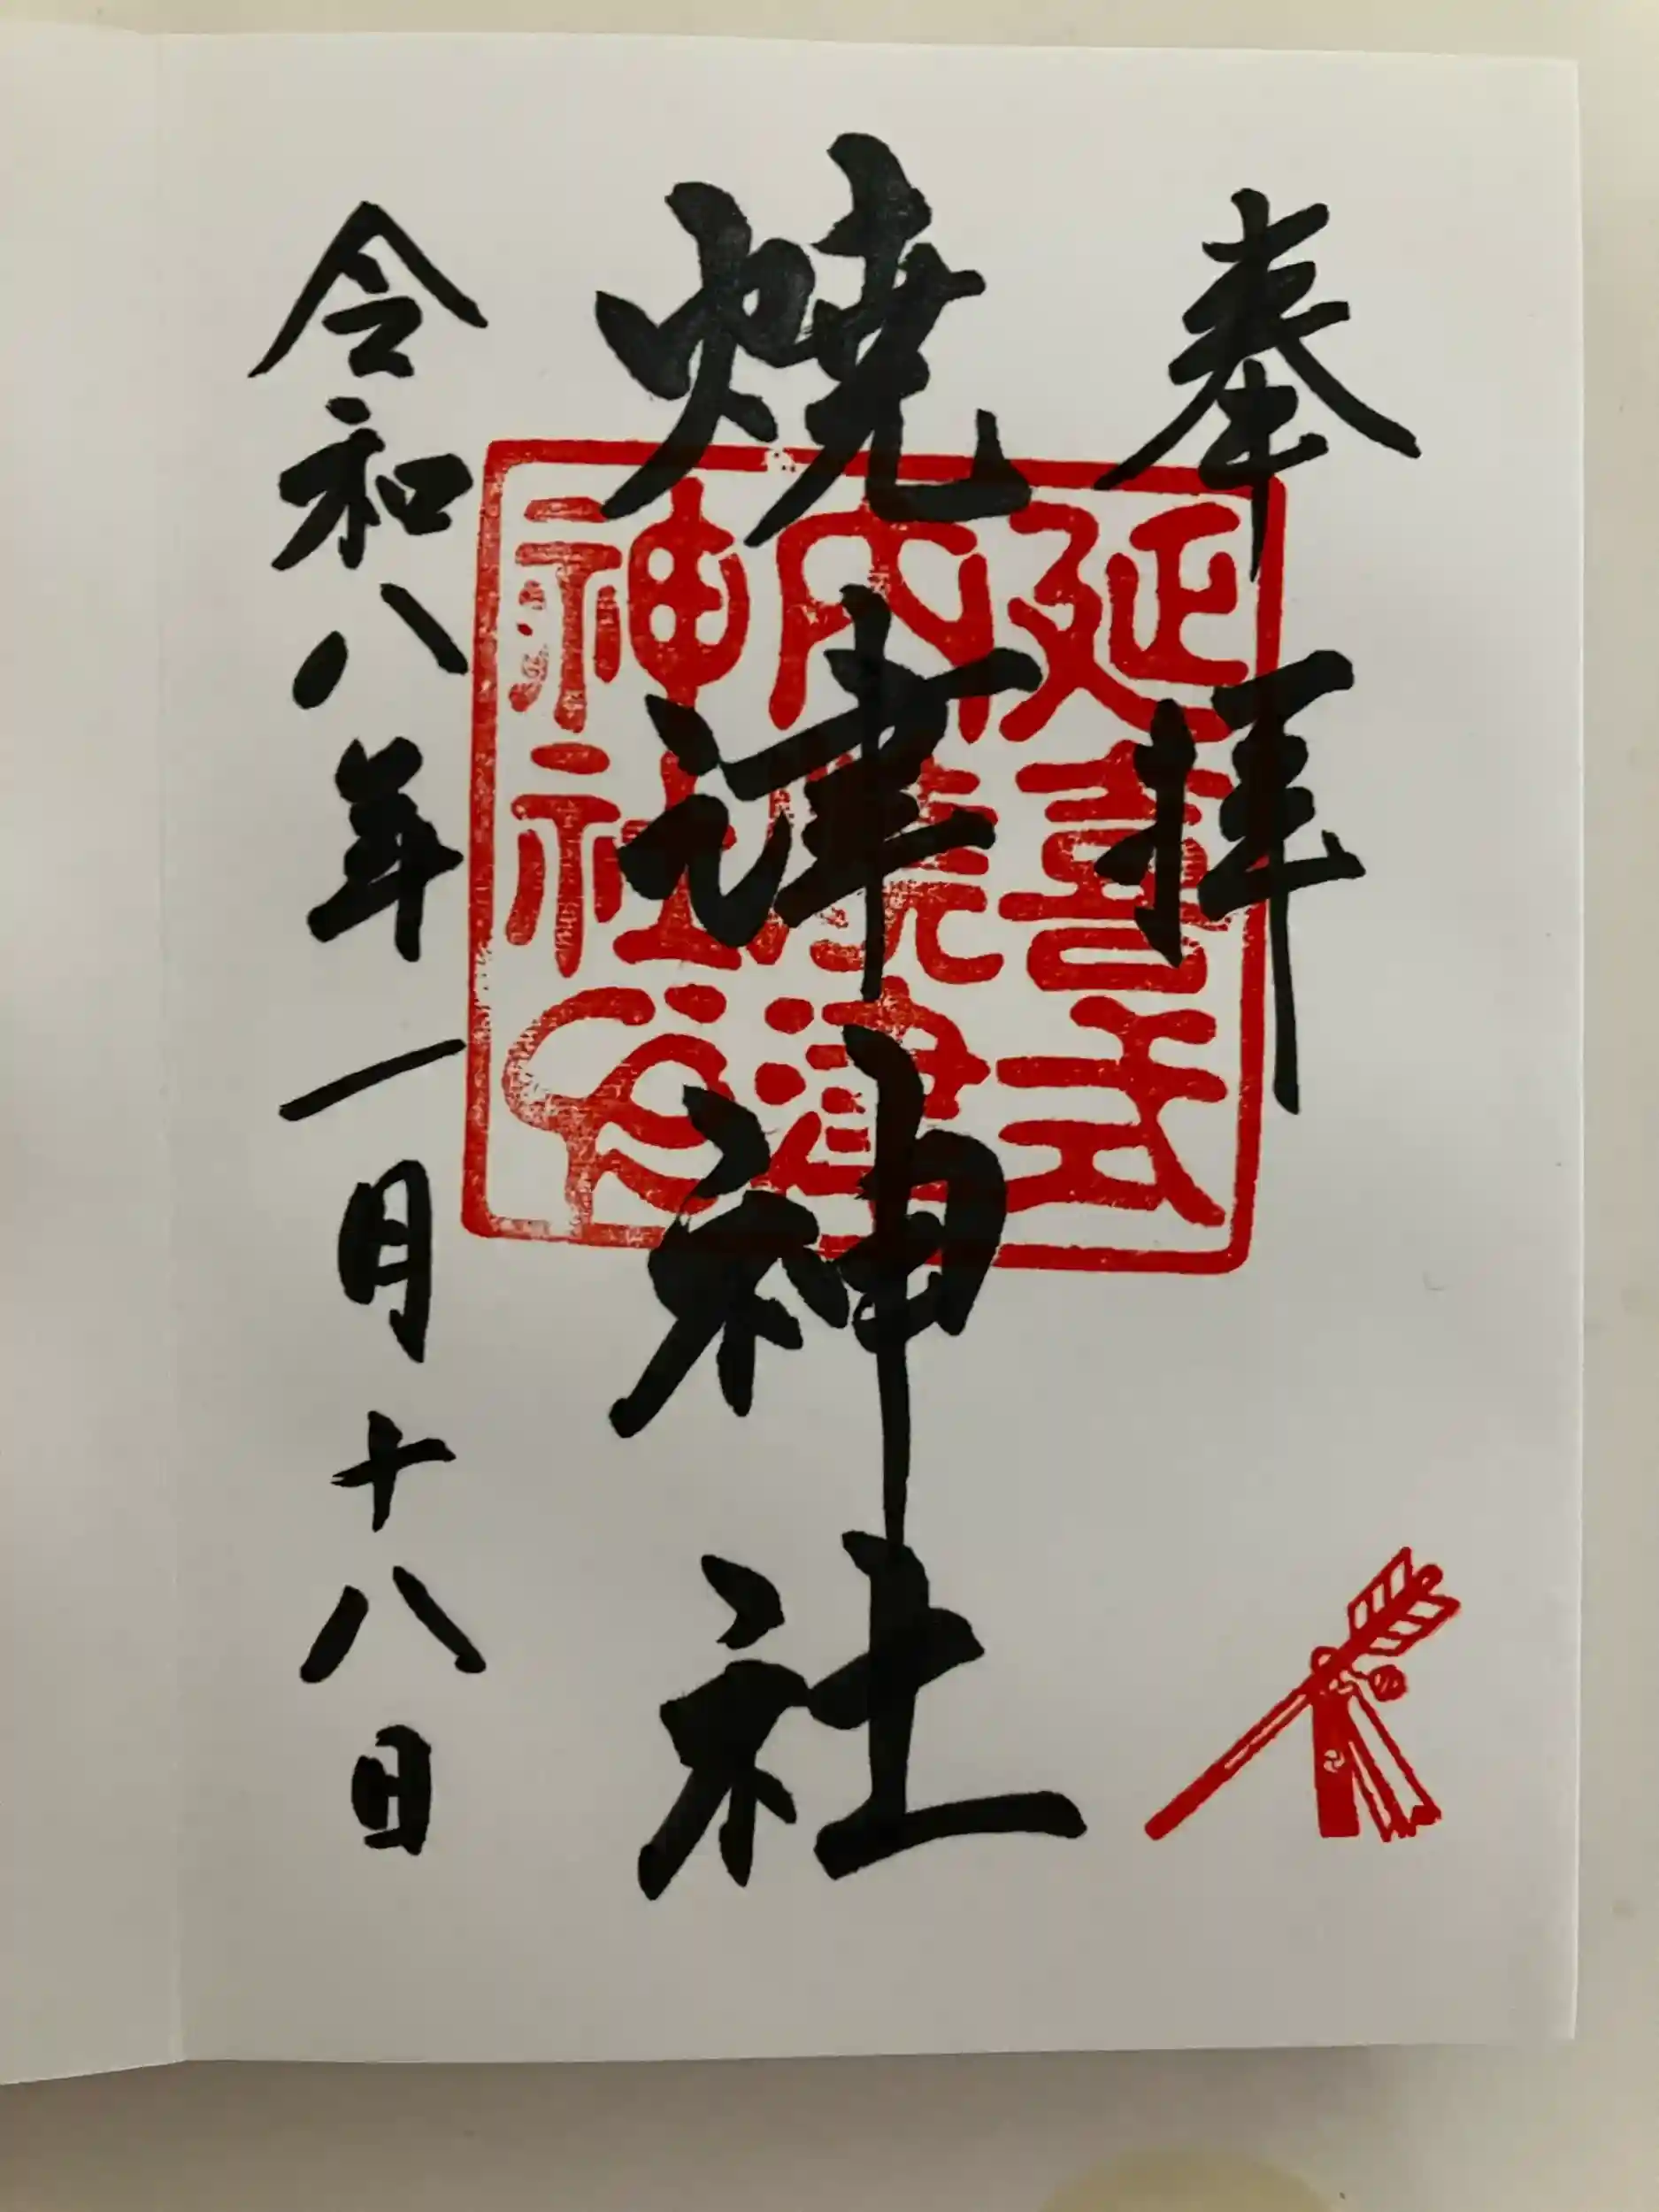 奉拝
焼津神社
令和八年一月十八日
延喜式
内焼津
神社印